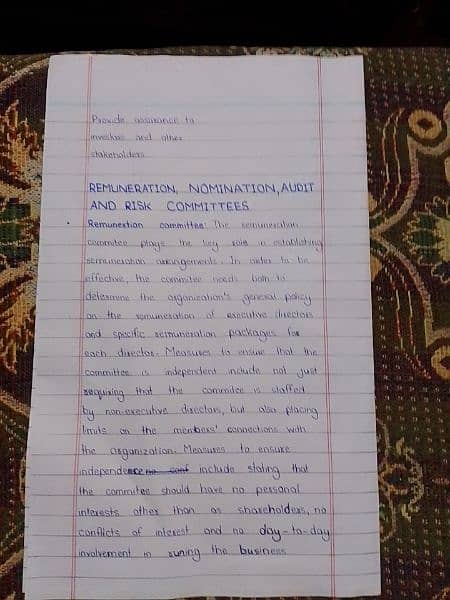 Provide assurance to
investors and other
stakeholders.
REMUNERATION, NOMINATION, AUDIT
AND RISK COMMITTEES
Remunextion committee: The remuneration
commitee plays the key role in establishing
remuneration arrangements. In order to be
effective, the commitee needs both to
determine the organization's general policy
on the remuneration of executive directors
and specific remuneration packages for
each director. Measures to ensure that the
committee is independent include not just
requiring that the commitee is staffed
by non-executive directors, but also placing
limits on the members' connections with
the organization. Measures to ensure
independence include stating that
the commitee should have no personal
interests other than as shareholders, no
conflicts of interest and no day-to-day
involvement in runing the business